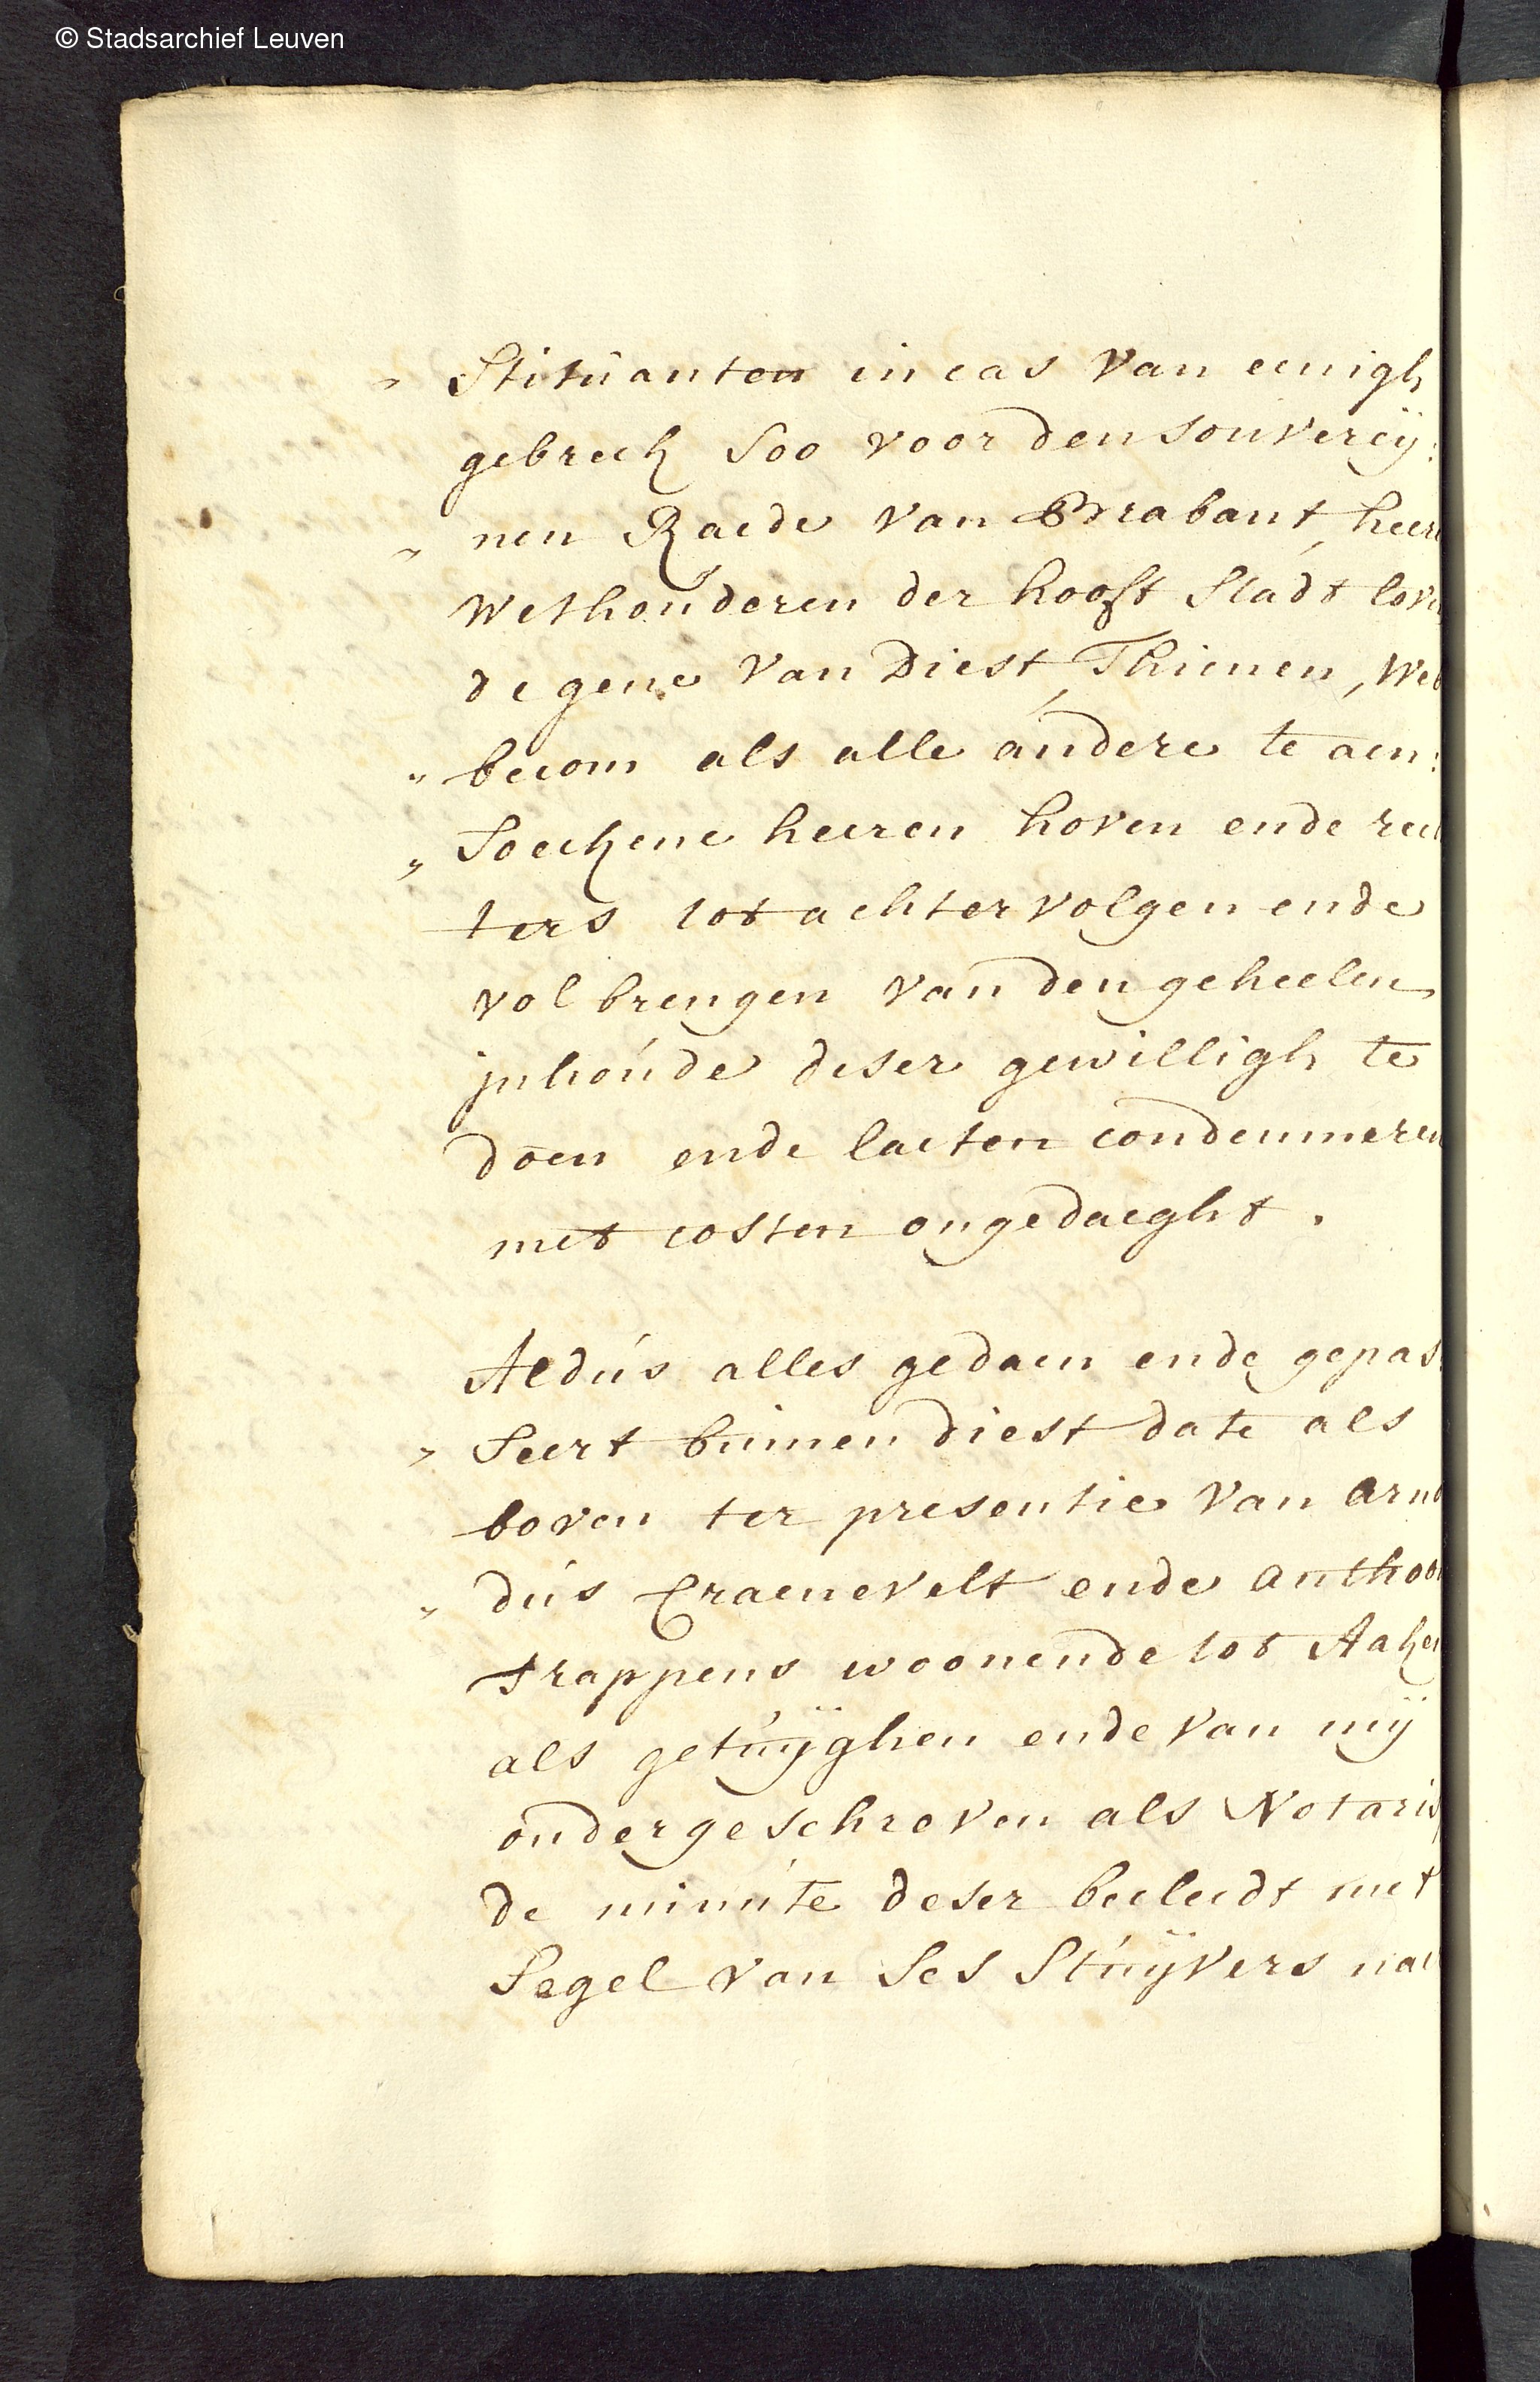 © Stadsarchief Leuven
" Stitúanten in cas van eenigh
gebreck soo voor den souvereÿ:
" nen Raede van Brabant, heere
Wethouderen der hooft stadt love
de gene van Diest, Thienen, Web
" becom als alle andere te aen:
" soeckene heeren hoven ende rech
ters tot achtervolgen ende
volbrengen van den geheelen
inhoúde deser gewilligh te
doen ende laeten condemneren
met costen ongedaeght.
Aldús alles gedaen ende gepas
" seert binnen diest date als
boven ter presentie van arnol
" dús Craenevelt ende anthoon
trappens woonende tot
als getúÿghen ende van mÿ
ondergeschreven als Notaris
de minúte deser beeleedt met
Segel van ses stúÿvers naer